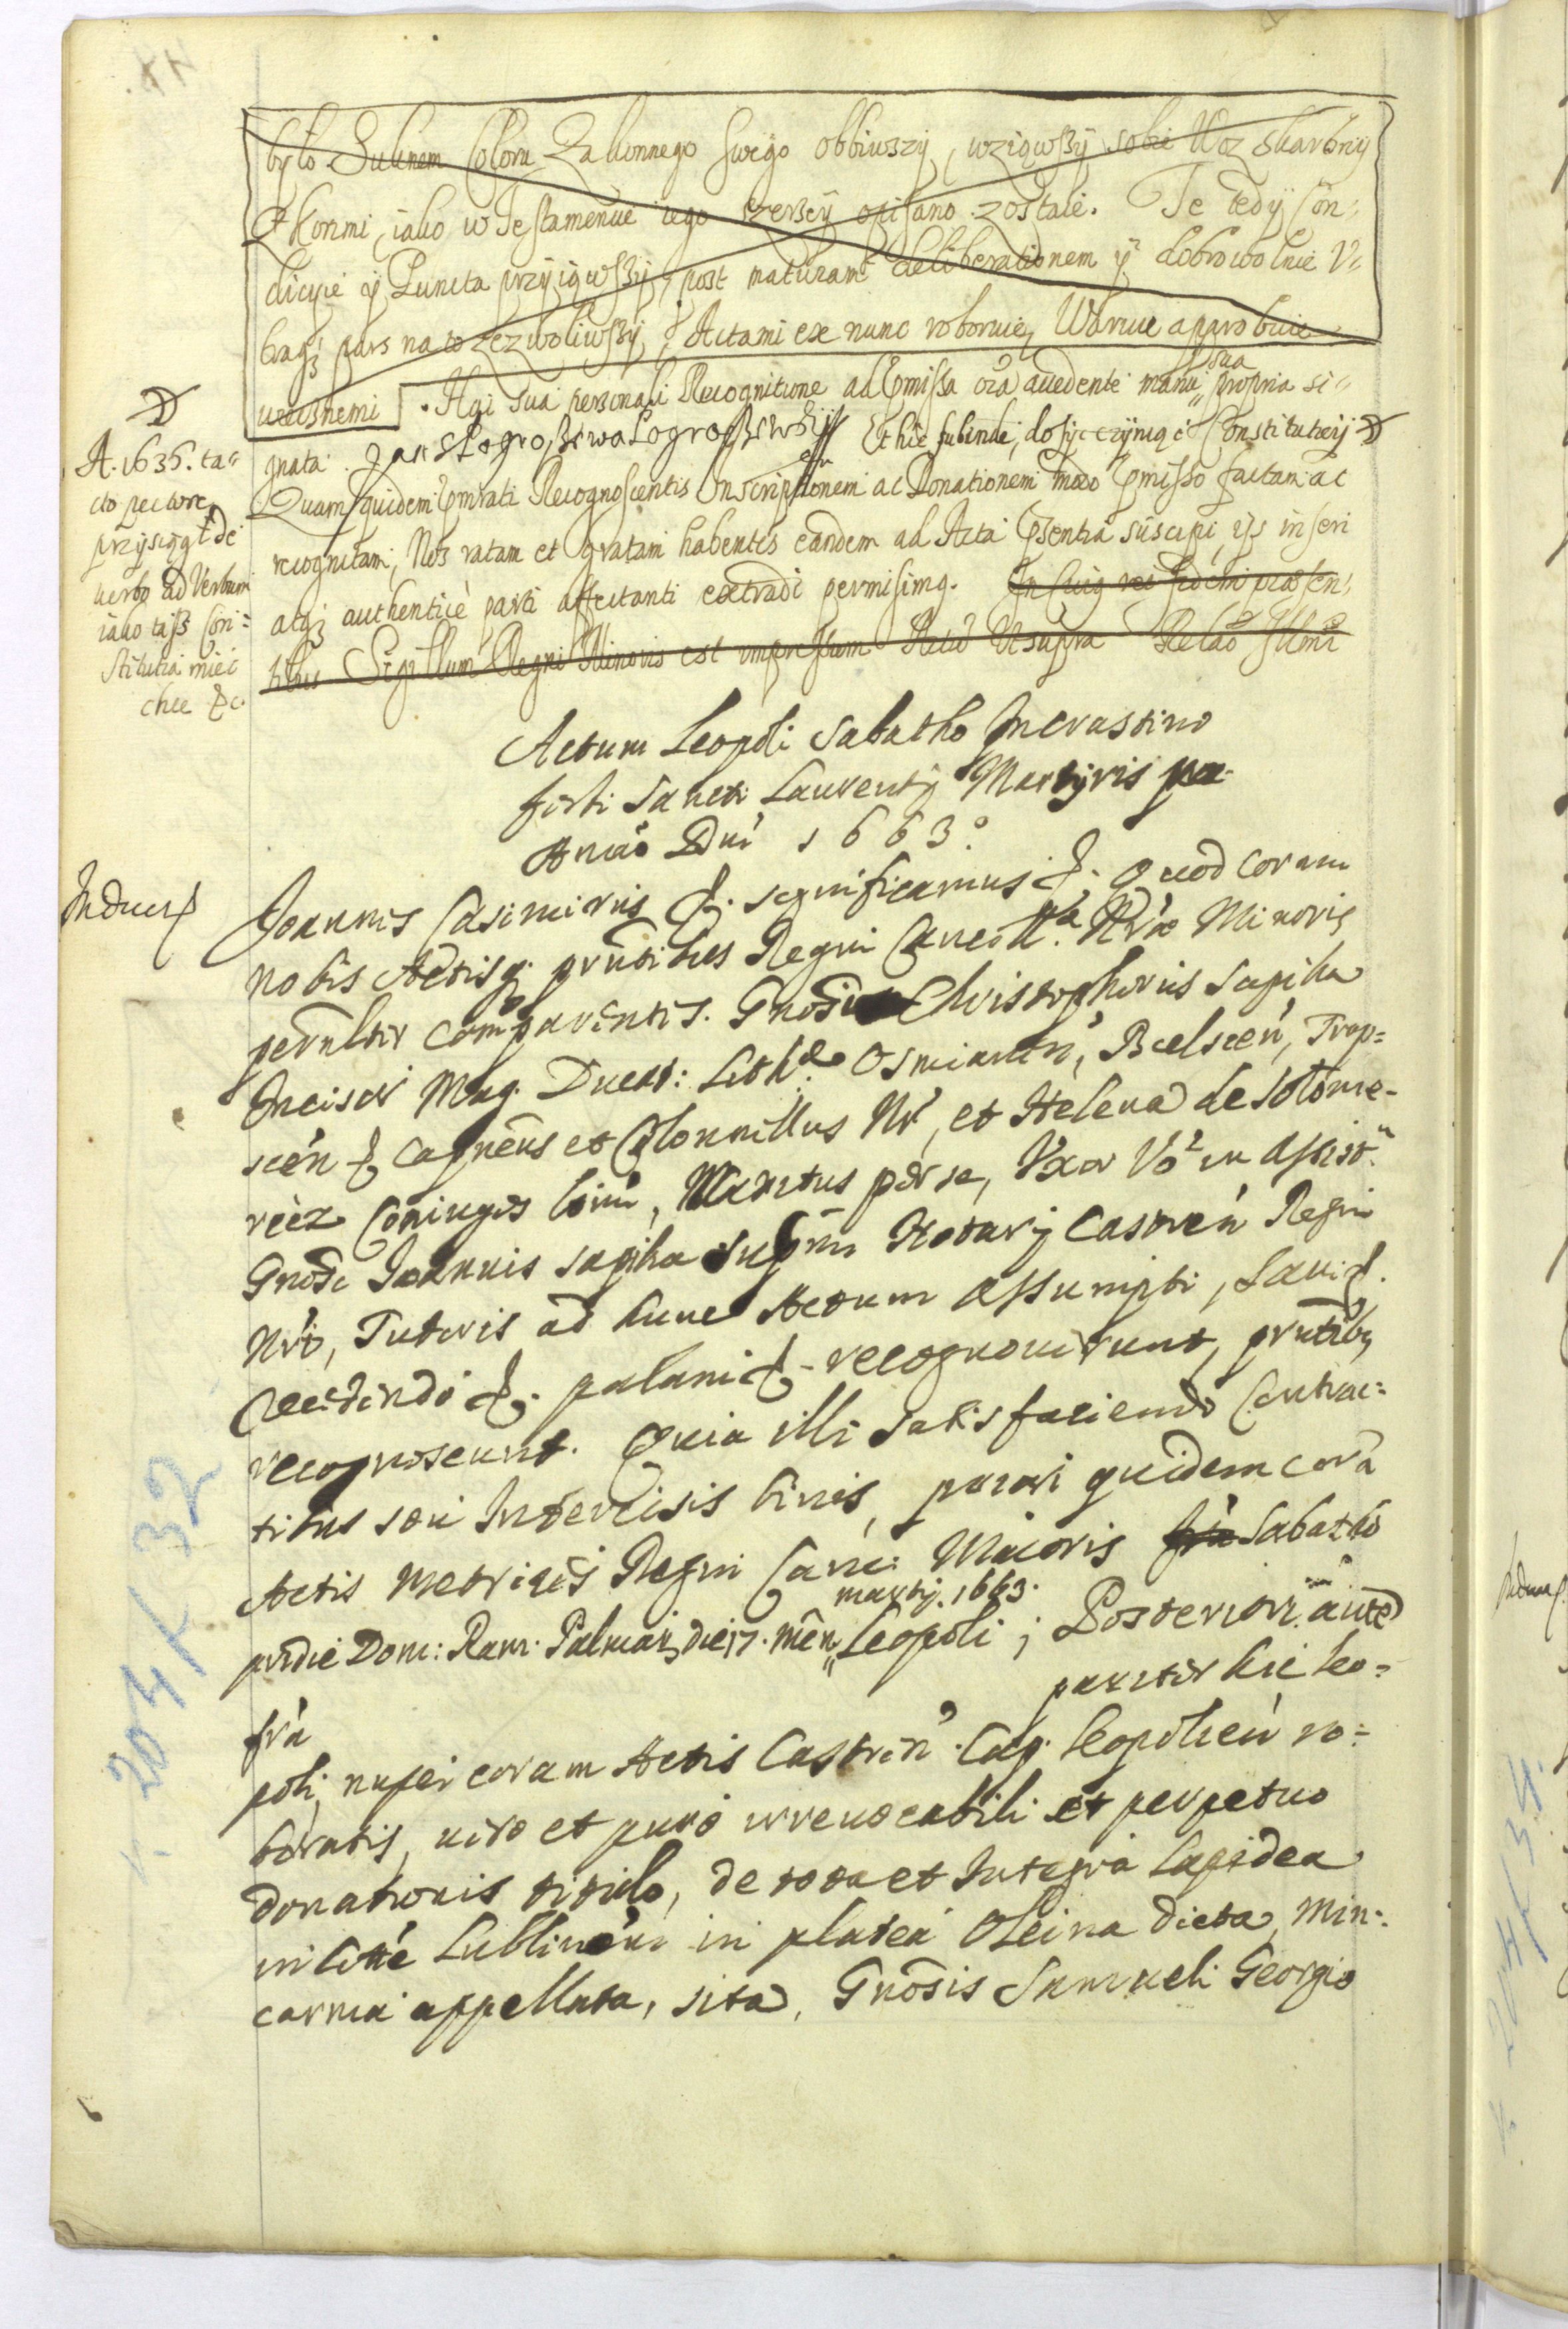 było Suknem Coloru Zakonnego swego obbiwszy, wziąwszy sobie Woz skarbny
Z Konmi, iako w Testamencie iego szerzey opisano zostaie. Te tedy Con„
dicyie y Puncta przyiąwszy, post maturam deliberationem y dobrowolnie V„
traq; pars na to zezwoliwszy, Actami ex nunc roboruie, Waruie aprobuie
wiecznemi . Aqi sua personali Recognitione ad Pmissa oia accedente manu sua propria si„
gnata. Jan s Łogroszewa Łogroszewskij Et hic subinde, dosyc czyniąc Constitutiey
A. 1636. ta„
cto pectore
przysiągł de
verbo ad Verbum
iako taż Con„
stitutia mieć
chce &c.
Quam quidem Pmrati Recognoscentis Inscriptionem ac Donationem modo Pmisso factam ac
recognitam, Nos ratam et gratam habentes eandem ad Acta Psentia suscipi, ijs inseri
atq; authenticè parti affectanti extradi permisimq. In cuiq rei fidem praesen„
tibus Sigillum Regni Minoris est impressum Actu Vt supra Relao Illmi
Actum Leopoli Sabatho In crastino
festi Sancti Laurentij Martyris
Anno Dni 1663º.
Inducta
Joannes Casimirus &. significamus &. Quod coram
nobis Actisq. prntibus Regni Cancell. Nrae Minoris
persnltr comparentes. Gnosus Christophorus Sapiha
Incisor Mag. Ducat: Lith. Osmianen, Bielscen, Trop=
scen & Capnens et Colonnellus Nr, et Helena de Solome=
recz Coniuges Leimi, Maritus per se, Vxor Vo in assist.
Gnosi Joannis Sapiha Supmi Notarij Castren Regni
Nri, Tutoris ad hunc Actum assumpti, sani &.
recedendo &. palam &. recognouerunt, prntibq
recognoscunt. Quia illi satisfaciendo Contrac=
tibus seu Intercisis binis, priori quidem cora
Actis Metrices Regni Canc: Maioris Sabatho
pridie Dom: Ram: Palmar, die 17. men martij. 1663. Leopoli; Posteriori aute
fra pariter hic Leo=
poli, nuper coram Actis Castren. Cap. Leopolien ro=
boratis, uero et puro irreuocabili et perpetuo
donationis titulo, de tota et Integra Lapidea
in Ciuitte Lublinen in platea Oleina dicta, Min=
carma appellata, sita, Gnosis Samueli Georgio
204 K 32
204 K 34.